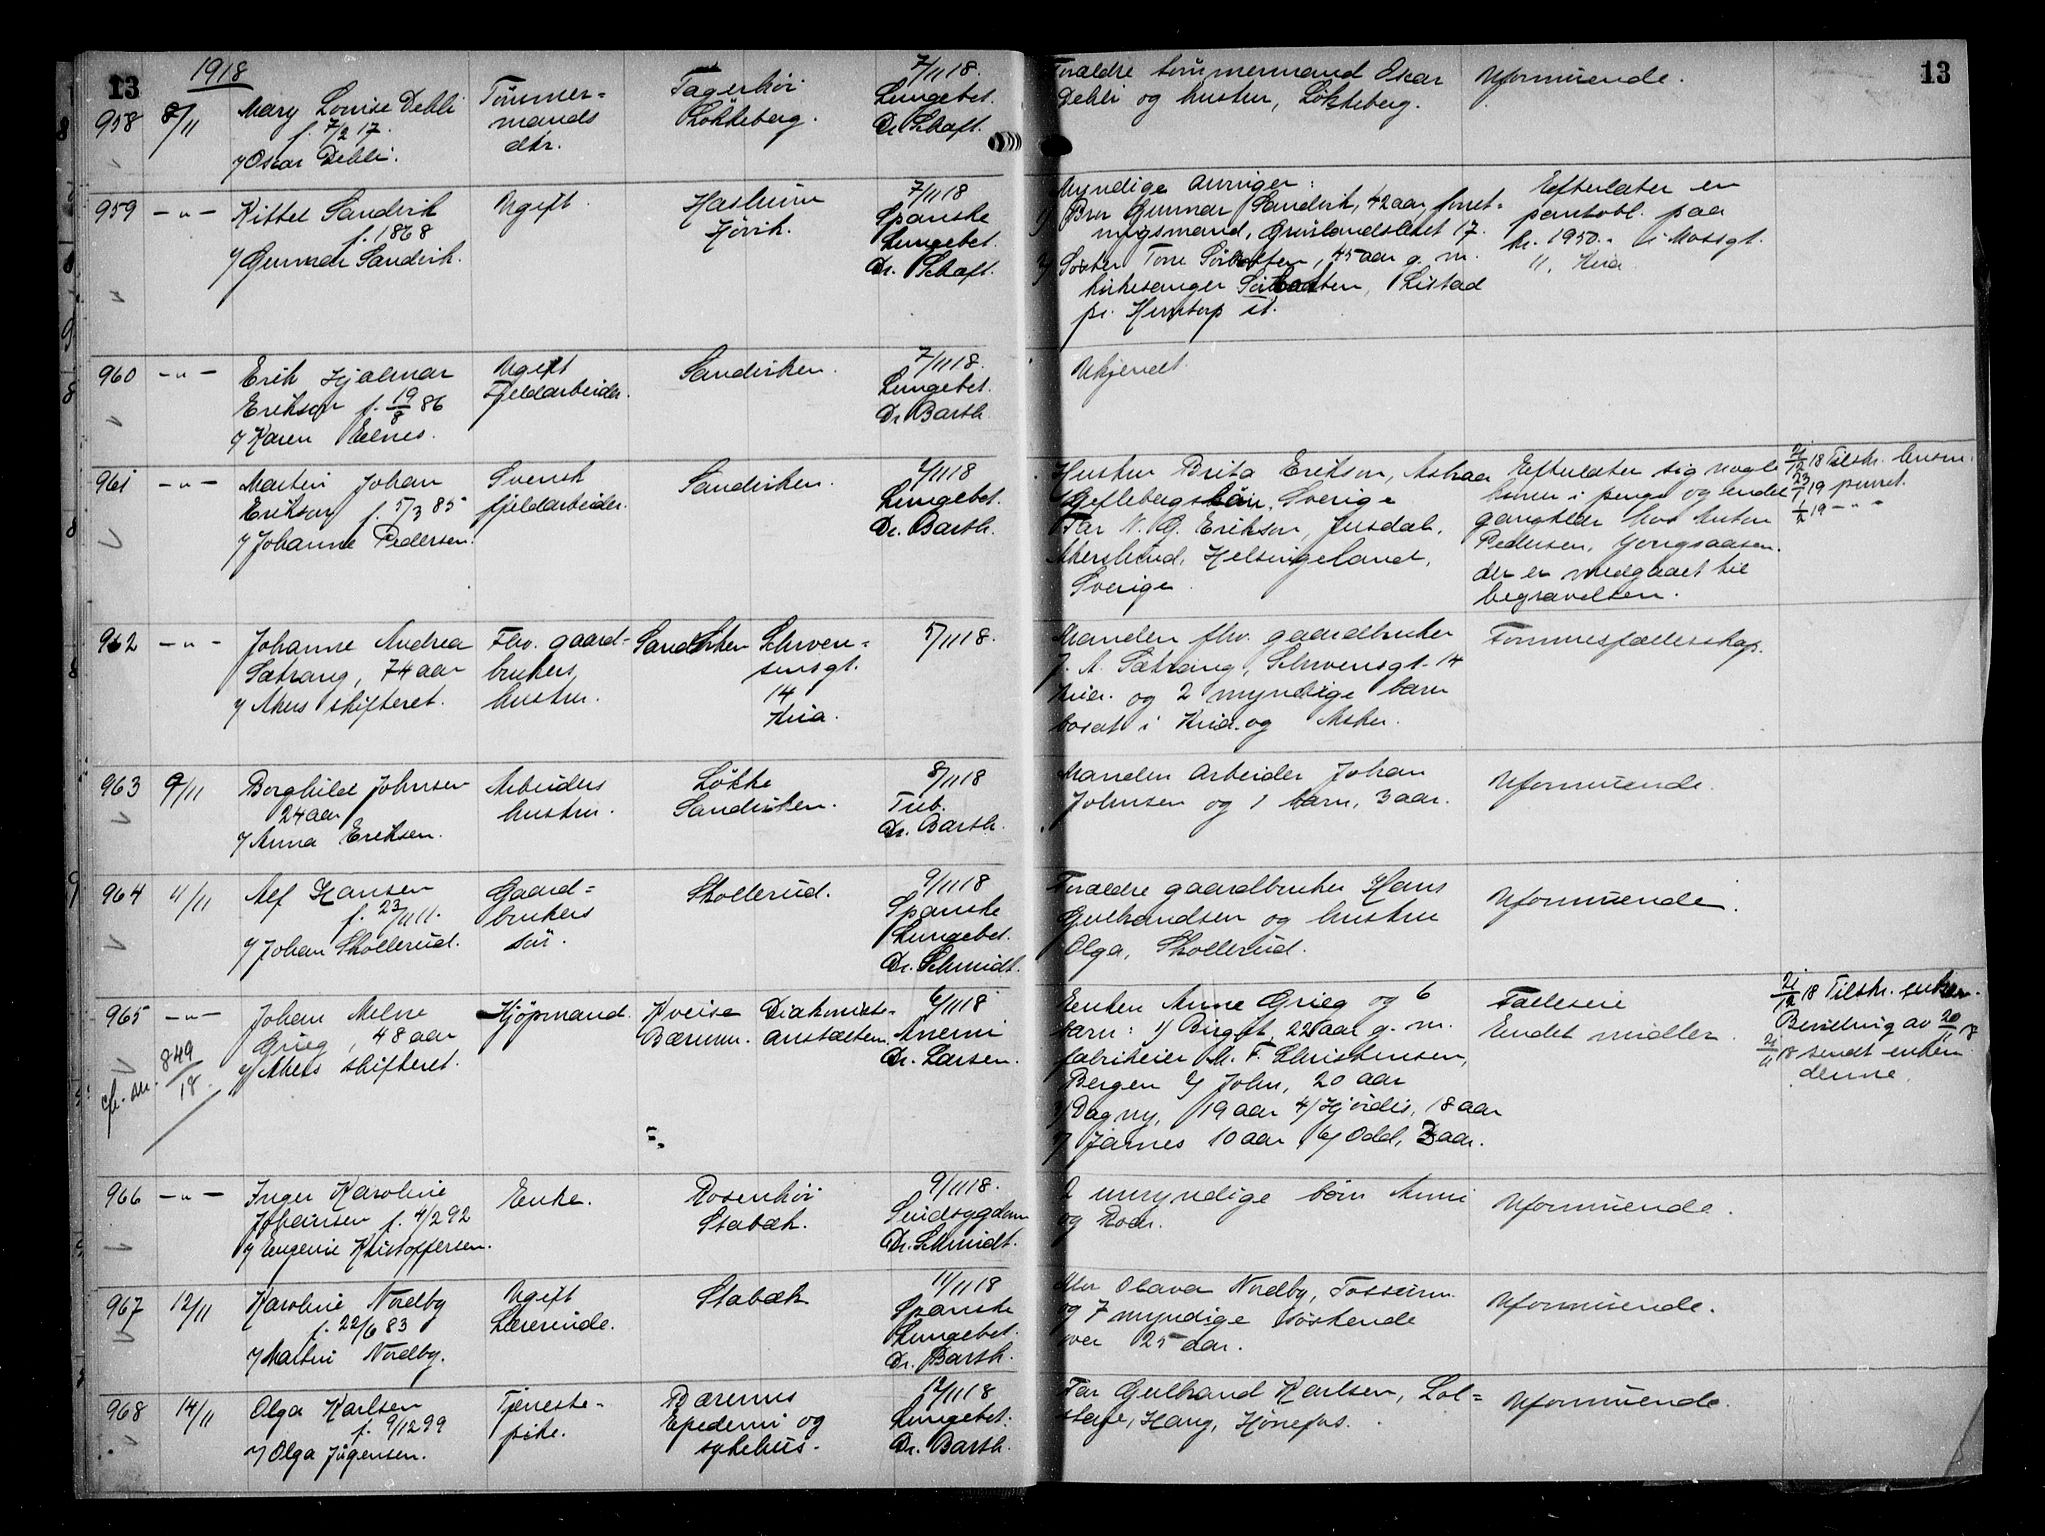 13
1918
958 8/11 Mary Louise Dehli
f. 7/2 17.
v/ Oscar Dehli.
Tømmer=
mands
dtr.
Fagerhøi
Løkkeberg.
7/11 18.
Lungebet.
Dr. Schaft.
Forældre tømmermand Oscar
Dehli og hustru, Løkkeberg.
Uformuende.
13
959 -"- Kittel Sandvik
f. 1868
v/ Gunnar Sandvik.
Ugift.
Haslum
7/11 18
Spanske
Lungebet.
Dr. Schaft.
Myndige arvinger:
1/ Bror Gunnar Sandvik, 42 aar, forret-
ningsmand, Grønlandsleret 17.
2/ Søster Tone 45 aar g. m.
kirkesanger Listad
pr. Hundorp st.
Efterlater en
pantobl. paa
kr. 1950.- i Mossgt.
11, Kria.
960 -"- Erik Hjalmar
Erikson f. 19/8 86
v/ Karen Eilnes.
Ugift
Fjeldarbeider.
Sandviken.
7/11 18.
Lungebet.
Dr. Barth
Ukjendt
961 -"- Martin Johan
Erikson f. 5/3 85
v/ Johanne Pedersen.
Svensk
fjeldarbeider.
Sandviken.
7/11 18
Lungebet.
Dr. Barth.
Hustru Brita Erikson,
Gefleborgs län, Sverige
Far N. G. Erikson, Jusdal,
Helsingeland,
Sverige.
Efterlater sig nogle
kroner i penge og endel
gangklær hos Anton
Pedersen, Yongsaasen.
der er medgaaet til
begravelsen.
21/12 18 Tilskr. lensm.
23/1 19 purret.
1/2 19 -"-
962 -"- Johanne Andrea
Sætrang, 74 aar
v/ Akers skifteret.
Fhv. gaard-
brukers
hustru.
Sandviken
Schwen-
sensgt.
14
Kria.
5/11 18.
Manden fhv. gaardbruker
J. A. Sætrang, Schwensgt. 14
Kria. og 2 myndige barn
bosat i Kria. og Asker.
Formuesfællesskap.
963 9/11 Borghild Johnsen
24 aar
v/ Anna Eriksen.
Arbeiders
hustru.
Løkke
Sandviken.
8/11 18
Tub.
Dr. Barth.
Manden Arbeider Johan
Johnsen og 1 barn, 3 aar.
Uformuende.
964 11/11 Alf Hansen
f. 23/11 11.
v/ Johan Skollerud.
Gaard=
brukers
søn.
Skollerud.
9/11 18
Spanske
Lungebet.
Dr. Schmidt.
Forældre gaardbruker Hans
Gulbrandsen og hustru
Olga, Skollerud.
Uformuende.
965 -"- Johan Melne
Grieg, 48 aar
v/ Akers skifteret.
cfr. nr. 849/18
Kjøpmand.
Kveise
Bærum.
Diakonis-
anstalten.
6/11 18
Anemi
Dr. Larsen.
Enken Anne Grieg og 6
barn: 1/ Birgit, 22 aar g. m.
fabrikeier M. F. Christensen,
Bergen 2/ John, 20 aar
3/ Dagny, 19 aar 4/ Hjørdis, 18 aar
5/ James 10 aar 6/ Odd, 3 aar.
Fælleseie
Endel midler.
21/12 18 Tilskr. enken.
Bevilling av 20/11 18
21/11 18 sendt enken
denne.
966 -"- Inger Karoline
Johansen f. 4/2 92
v/ Eugenie Kristoffersen.
Enke.
Rosenhøi
Stabæk.
9/11 18.
Sindsygdom
Dr. Schmidt.
2 umyndige børn Anni
og Roar.
Uformuende.
967 12/11 Karoline Nordby
f. 22/6 83
v/ Martin Nordby.
Ugift
Lærerinde.
Stabæk
11/11 18
Spanske
Lungebet.
Dr. Barth.
Mor Olava Nordby, Fossum
og 7 myndige søskende
over 25 aar.
Uformuende.
968 14/11 Olga Karlsen
f. 9/12 99
v/ Olga Jügensen.
Tjeneste-
pike.
Bærums
Epedemi og
sykehus.
12/11 18
Lungebet.
Dr. Barth.
Far Gulbrand Karlsen, Lol=
Haug, Hønefos.
Uformuende.